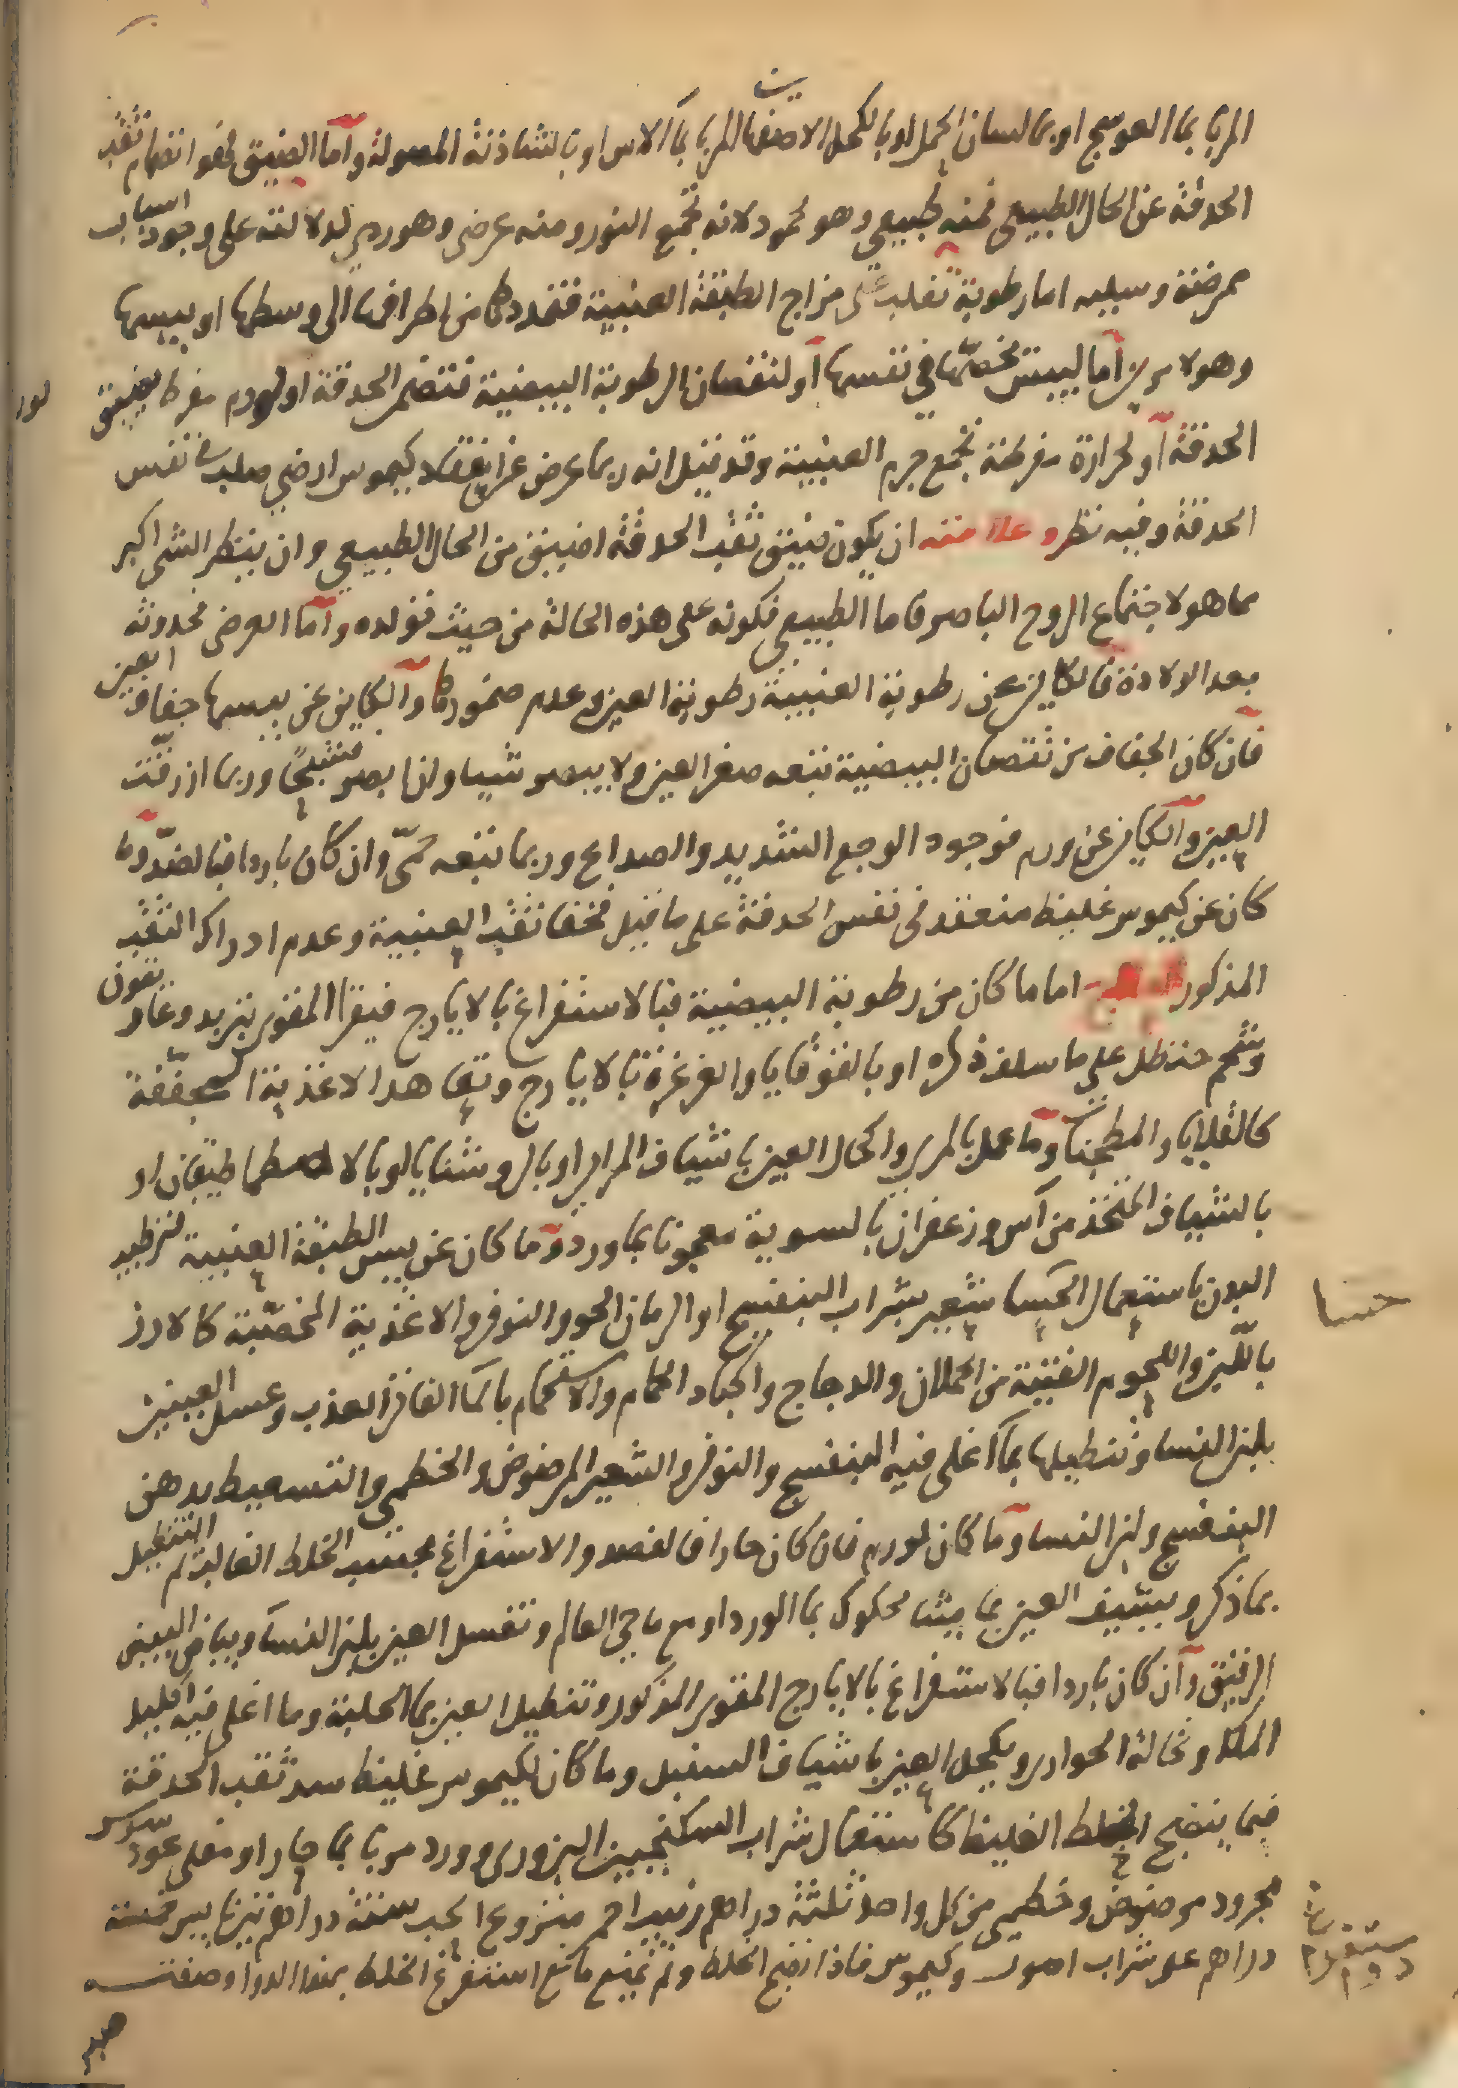 المربا بماء العوسج او بماء لسان الحمل او بالكحل الاصفهاني المربا بماء الاس او بالشاذنة المغسولة وأما الضيق فهو انضمام ثقب
الحدقة عن الحال الطبيعي فمنه طبيعي وهو محمود لانه يجمع النور ومنه عرضي وهو ردي لدلالته على وجود اسباب
ممرضة وسببه اما رطوبة تغلب على مزاج الطبقة العنبية فتمددها من اطرافها الى وسطها او يبسها
وهو لامرين اما ليبس يخصها في نفسها او لنقصان الرطوبة البيضية فتنضم الحدقة او لورم مفرط يضيق
الحدقة او لحرارة مفرطة تجمع جرم العنبية وقد قيل انه ربما عرض عن انعقاد كيموس ارضي صلب في نفس
الحدقة وفيه نظر وعلامته ان يكون ضيق ثقب الحدقة اضيق من الحال الطبيعي وان ينظر الشي اكبر
مما هو لاجتماع الروح الباصر فاما الطبيعي فكونه على هذه الحالة من حيث تولده وأما العرضي فحدوثه
بعد الولادة فالكاين عن رطوبة العنبية رطوبة العين وعدم ضمورها والكاين عن يبسها جفاف العين
فان كان الجفاف من نقصان البيضية تبعه صغر العين ولا يبصر شيا وان ابصر شبحا وربما ازرقت
العين والكاين عن ورم فوجود الوجع الشديد والصداع وربما تبعه حمى وان كان باردا فبالضد وما
كان عن كيموس غليظ منعقد في نفس الحدقة على ما قيل فخفا ثقب العنبية وعدم ادراك الثقب
المذكور اما ما كان من رطوبة البيضية فبالاستفراغ بالايارج فيقرا المقوى بتربد وغاريقون
وشحم حنظل على ما سلف ذكره او بالقوقايا والغرغرة بالايارج وتعاهد الاغذية المجففة
كالقلايا والمطجنات وما عمل بالمري واكحال العين باشياف المراير او بالروشنايا او بالاسطماطيقان او
بالشياف المتخذ من آس وزعفران بالسوية معجونا بماورد وما كان عن يبس الطبقة العنبية فترطيب
البدن باستعمال الحسا شعير بشراب البنفسج او الرمان الحلو والنوفر والاغذية المخصبة كالارز
باللبن واللحوم الفتية من الحملان والدجاج واكباد الحمام والاستحمام بالماء الفاتر العذب وغسل العينين
بلبن النسا وتنطيلها بماء اغلى فيه البنفسج والنوفر والشعير المرضوض والخطمي والتسعيط بدهن
البنفسج ولبن النسا وما كان لورم فان كان حارا فالفصد والاستفراغ بحسب الخلط الغالب ثم التنطيل
بما ذكر وبشيف العين بماميثا محكوك بماالورد او مع ماحي العالم وتغسل العين بلبن النسا وبياض البيض
الرقيق وان كان باردا فبالاستفراغ بالايارج المقوى المذكور وتنطيل العين بماء الحلبة وما اغلى فيه اكليل
الملك ونخالة الحوارى ويكحل العين باشياف السنبل وما كان لكيموس غليظ سد ثقب الحدقة
فبما ينضج الخلط الغليظ كاستعمال شراب السكنجبين البزوري وورد مربا بما حار او مغلي عود سوس
مجرود مرضوض وخطمي من كل واحد ثلثة دراهم زبيب احمر منزوع العجب ستة دراهم
دراهم على شراب اصول وكيموس فاذا انضج الخلط ولم يمنع مانع استفرغ الخلط بهذا الدوا وصفته
صبر
حسا